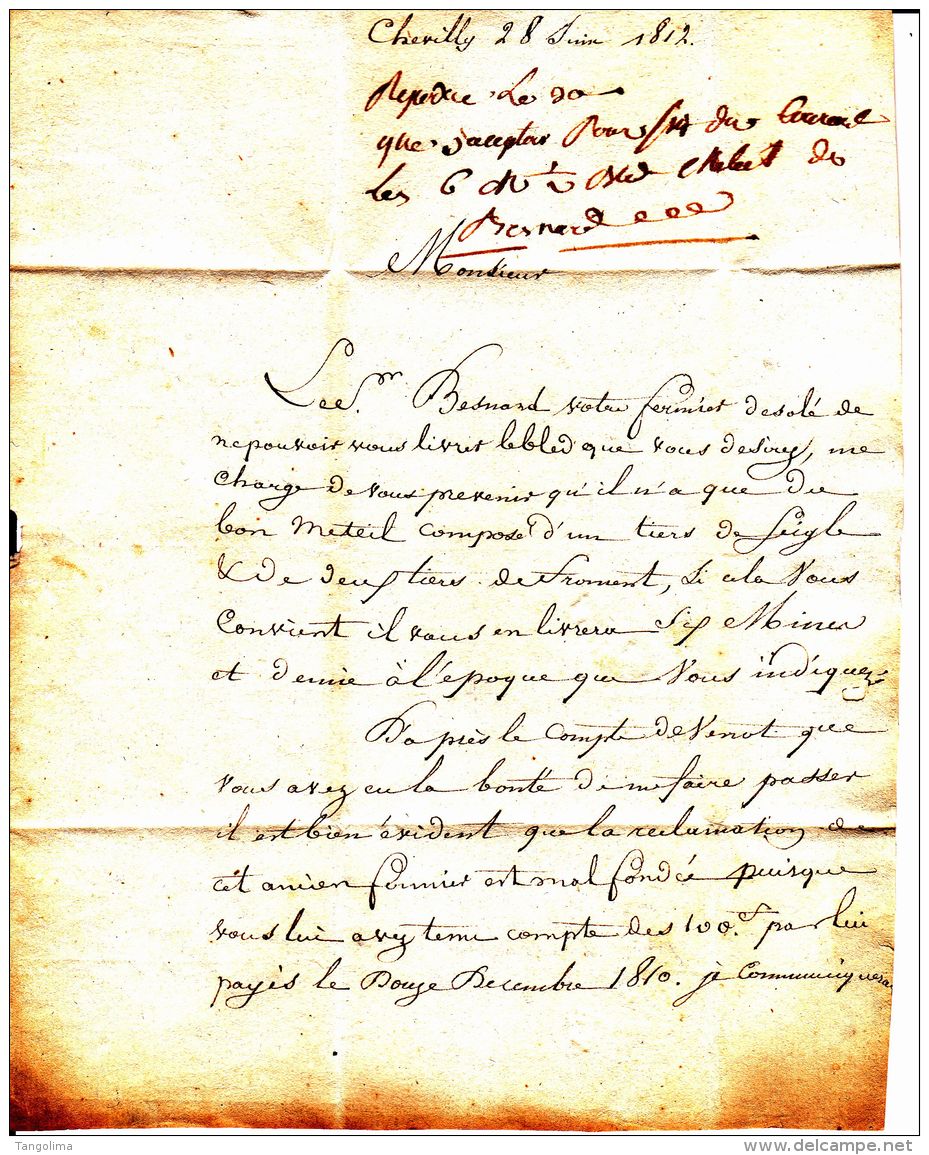 Chevilly 28 Juin 1812.
Repondu Le 30
que j'accepter Pour du
les 6 de
Besnard
Monsieur
Le S.r Besnard votre fermier desolé de
ne pouvoir vous livrer le bled que vous desirez, me
charge de vous prevenir qu'il n'a que du
bon Meteil composé d'un tiers de Seigle
& de deux tiers de Froment, Si cela Vous
Convient il vous en livrera Six Mines
et demie à l'époque que Vous indiquerez
D'après le Compte de Venot que
Vous avez eu la bonté de me faire passer
il est bien évident que la reclamation de
cet ancien fermier est mal fondée puisque
vous lui avez tenu compte des 100.f par lui
payés le Douze Decembre 1810. je Communiquerai
Tangolima
www.delcampe.net